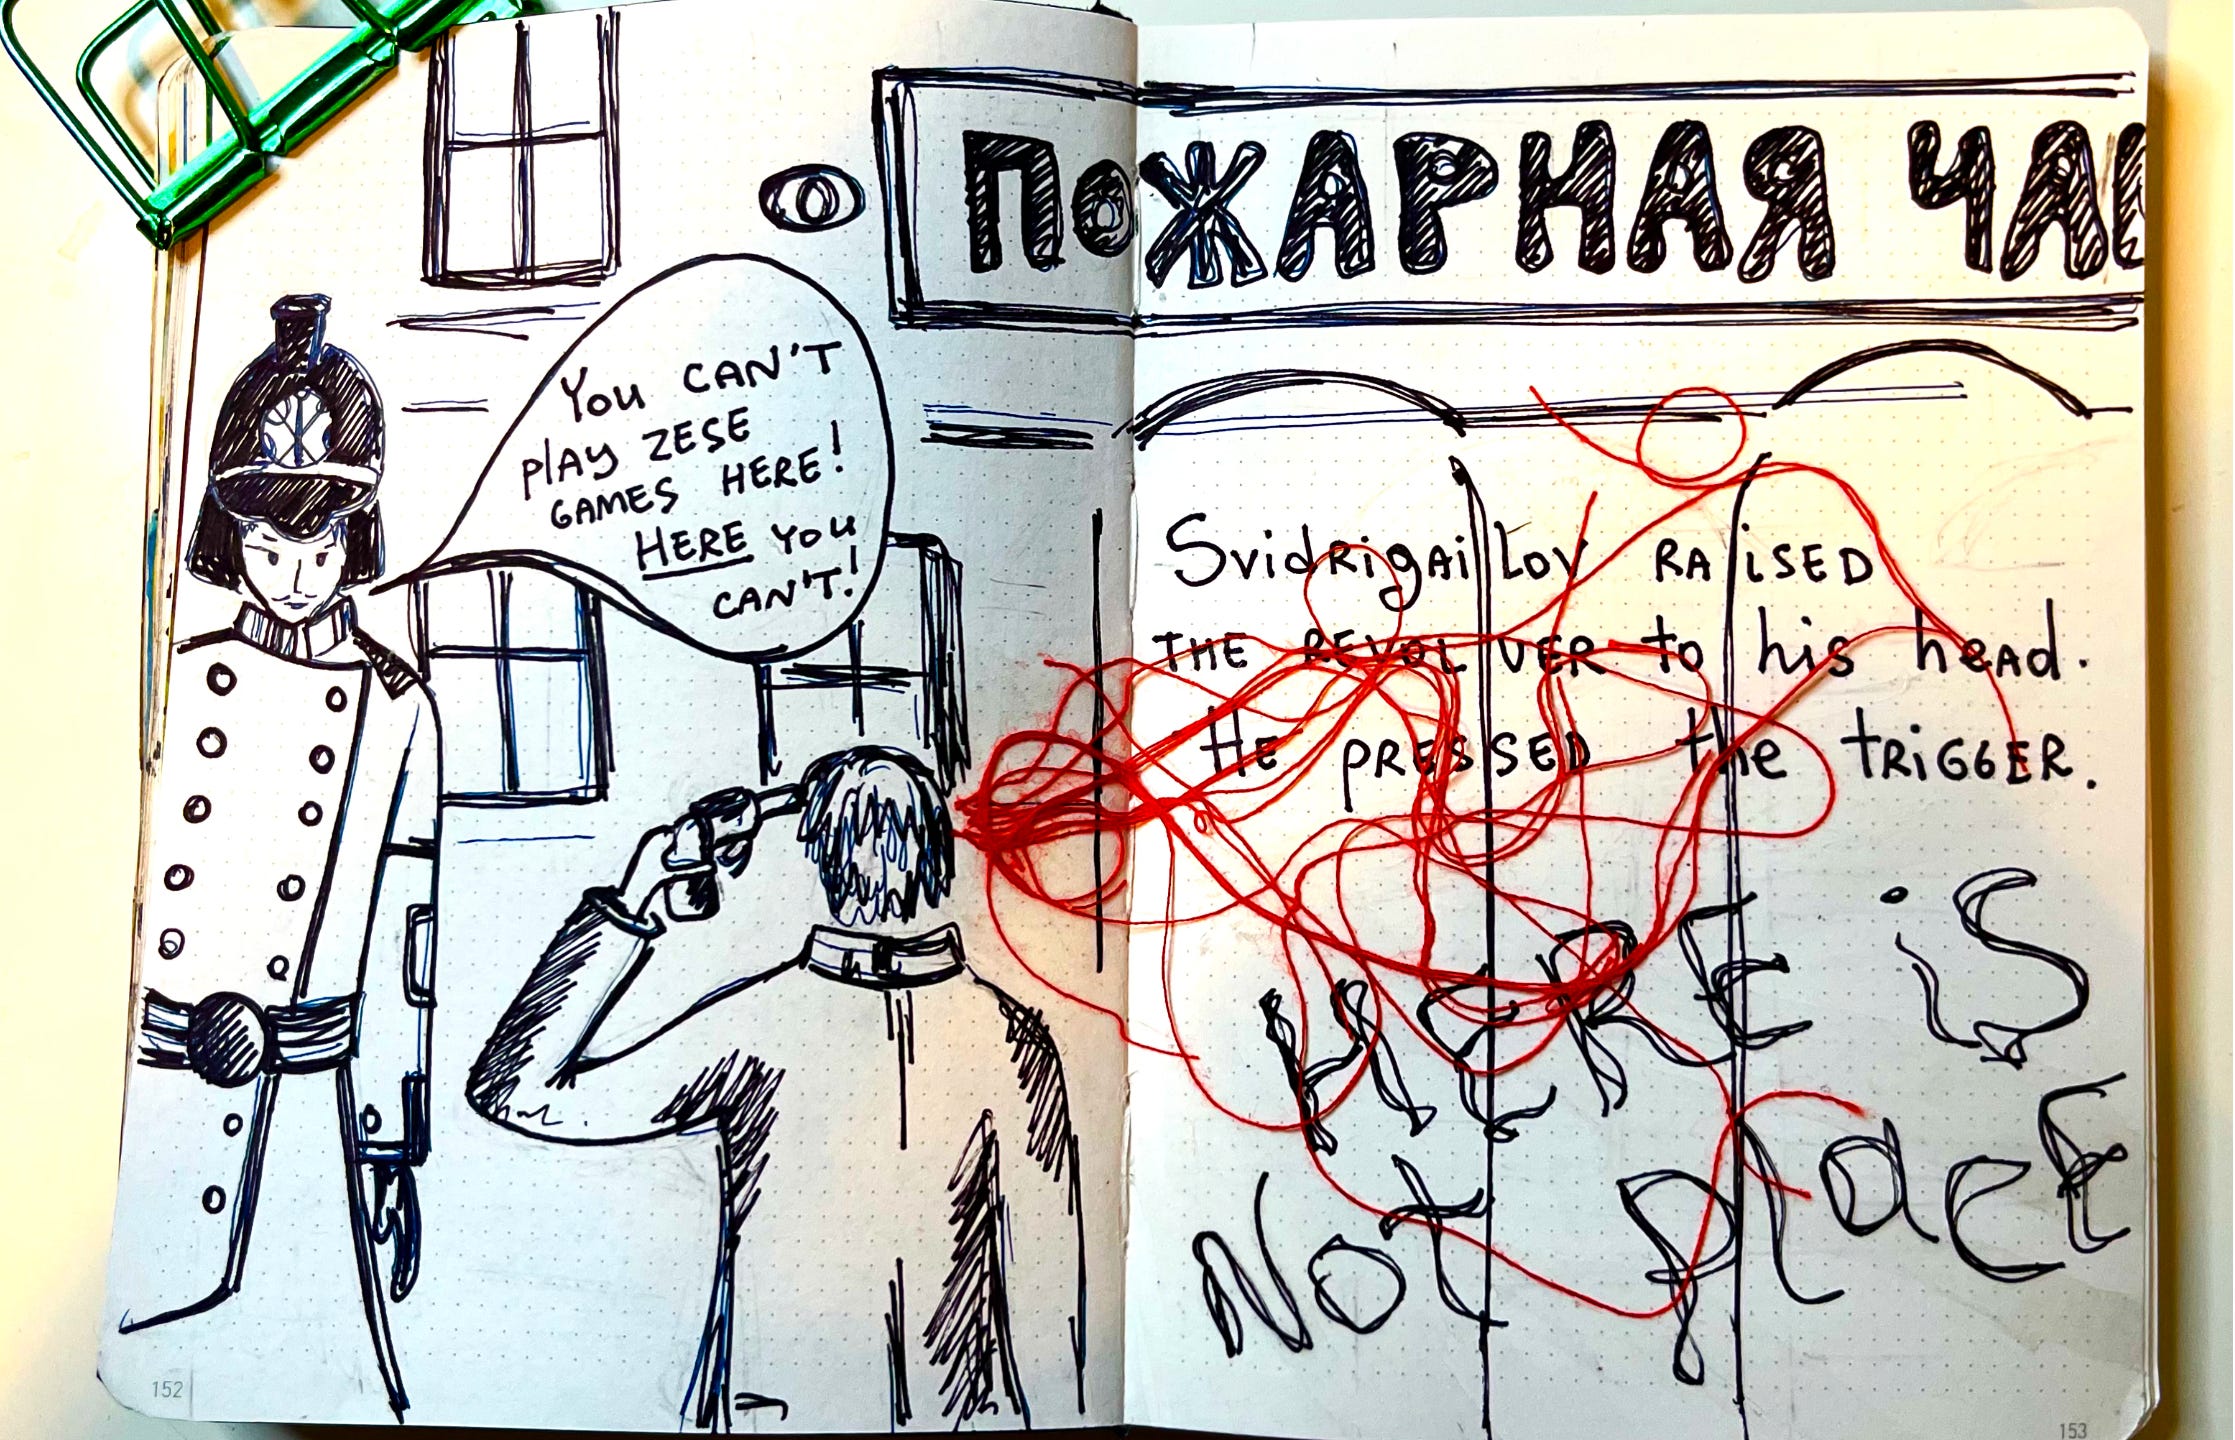 ПОЖАРНАЯ ЧАС
YOU CAN'T
PLAY ZESE
GAMES HERE!
HERE YOU
CAN'T!
Svidrigailov RAISED
THE REVOLVER to his head.
HE PRESSED the TRIGGER.
HERE iS
NOT PlacE
152
153